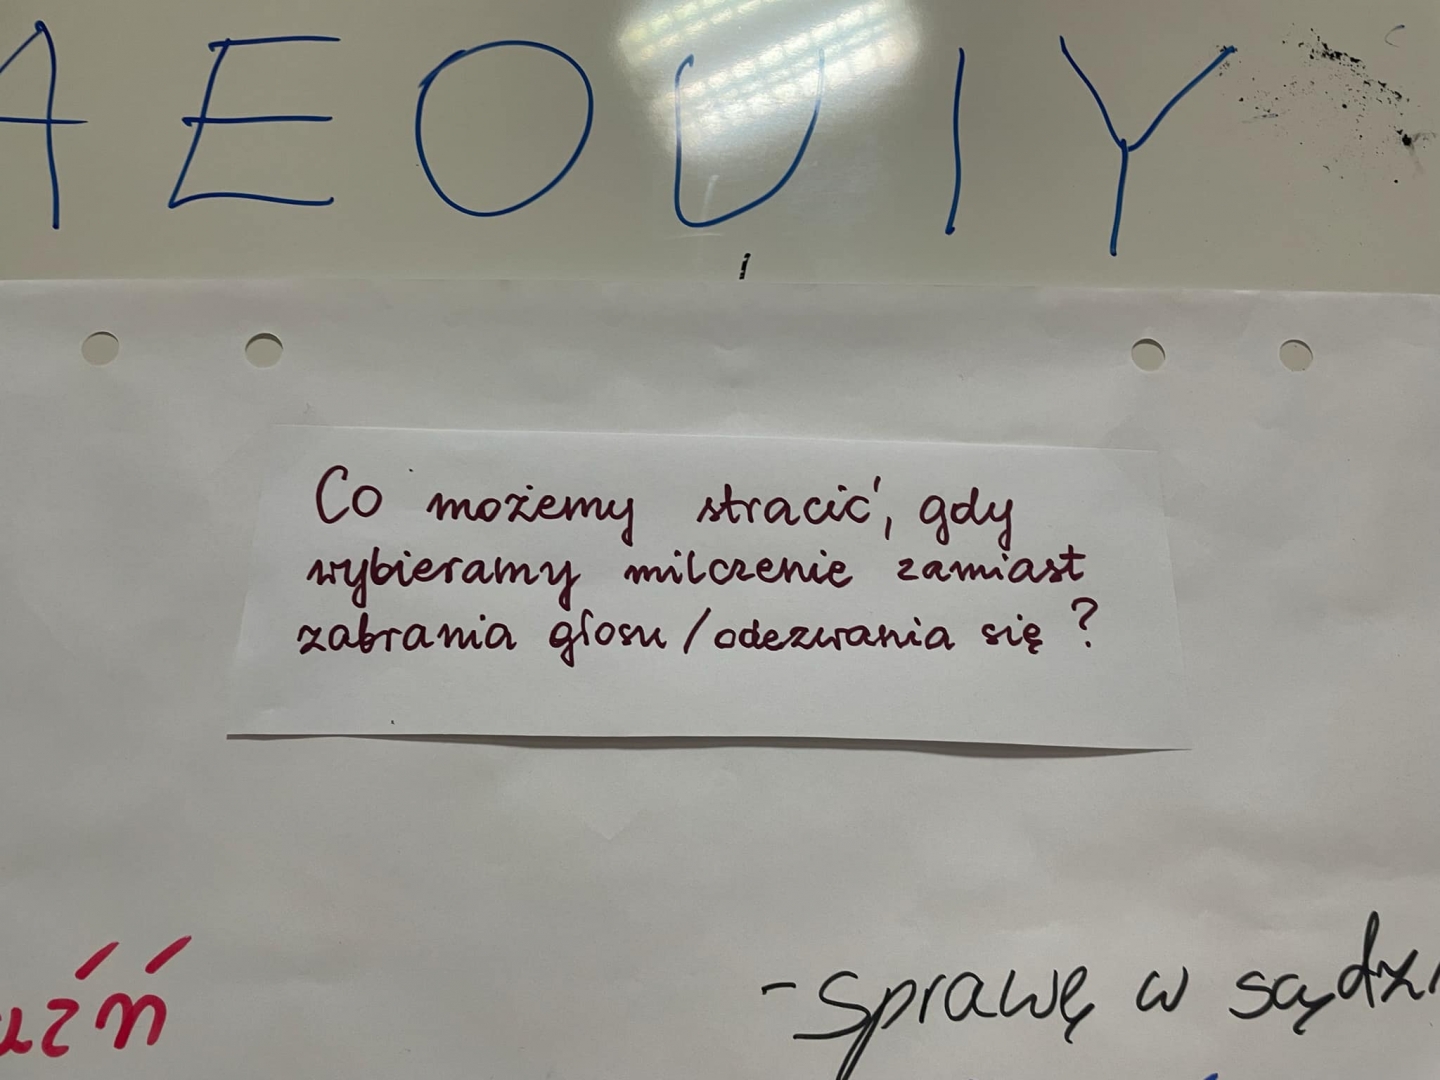 A E O U I Y
Co możemy stracić, gdy
wybieramy milczenie zamiast
zabrania głosu/odezwania się?
- Sprawę w sądzi